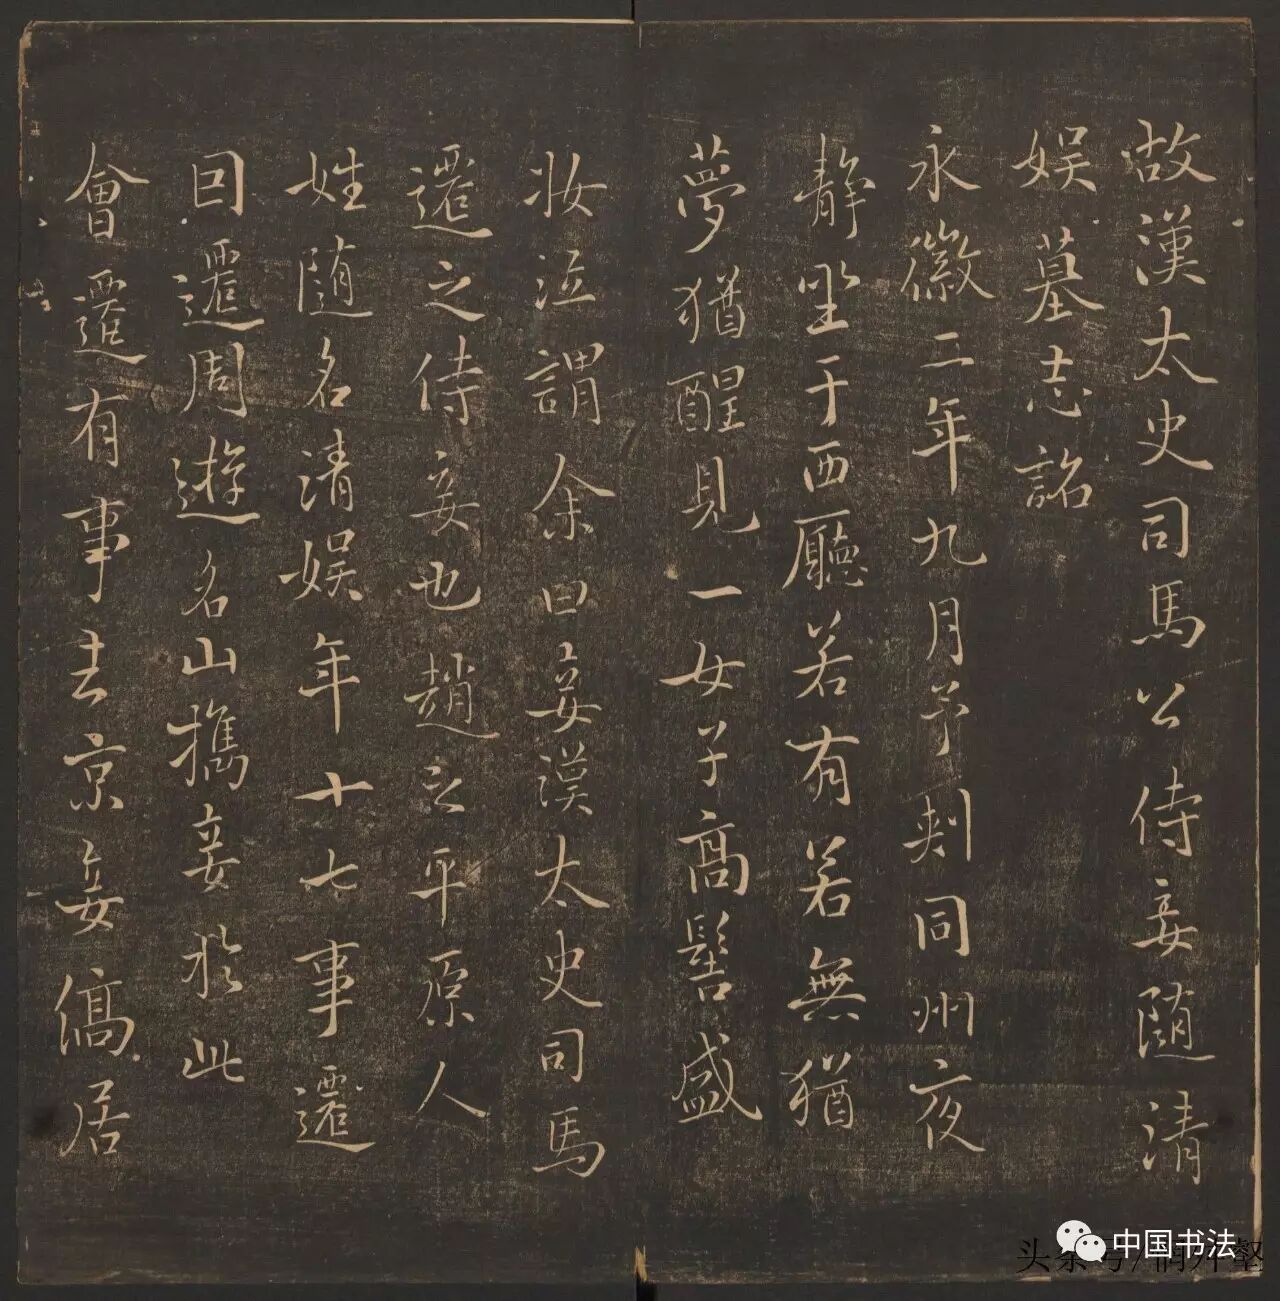 故漢太史司馬公侍妾随清
娱墓志銘
永徽二年九月予刾同州夜
静坐于西廳若有若無猶
夢猶醒見一女子高髻盛
妝泣謂余曰妾漢太史司馬
遷之侍妾也趙之平原人
姓随名清娱年十七事遷
因遷周遊名山携妾於此
會遷有事去京妾僑居
中国书法